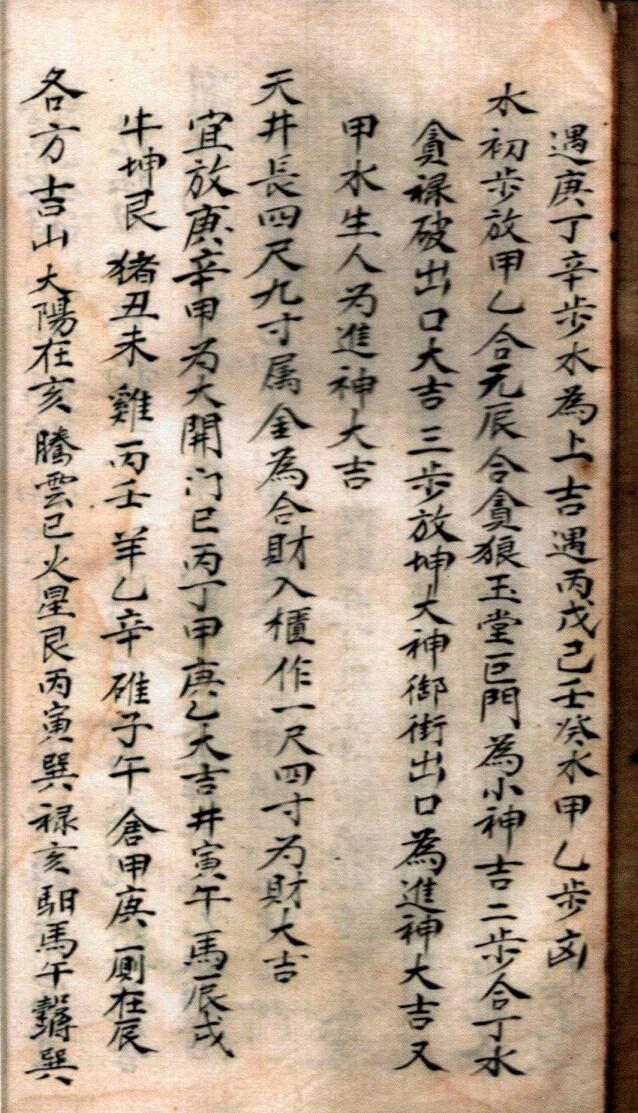 遇庚丁辛步水為上吉遇丙戊己壬癸水甲乙步凶
水初步放甲乙合元辰合貪狼玉堂巨門為小神吉二步合丁水
貪禄破出口大吉三步放坤大神御街出口為進神大吉又
甲水生人为進神大吉
天井長四尺九寸属金為合財入櫃作一尺四寸为財大吉
宜放庚辛甲为大開门巳丙丁甲庚乙大吉井寅午馬辰戌
牛坤艮猪丑未雞丙壬羊乙辛碓子午倉甲庚厠在辰
各方吉山太陽在亥騰雲巳火星艮丙寅巽禄亥馹馬午巽